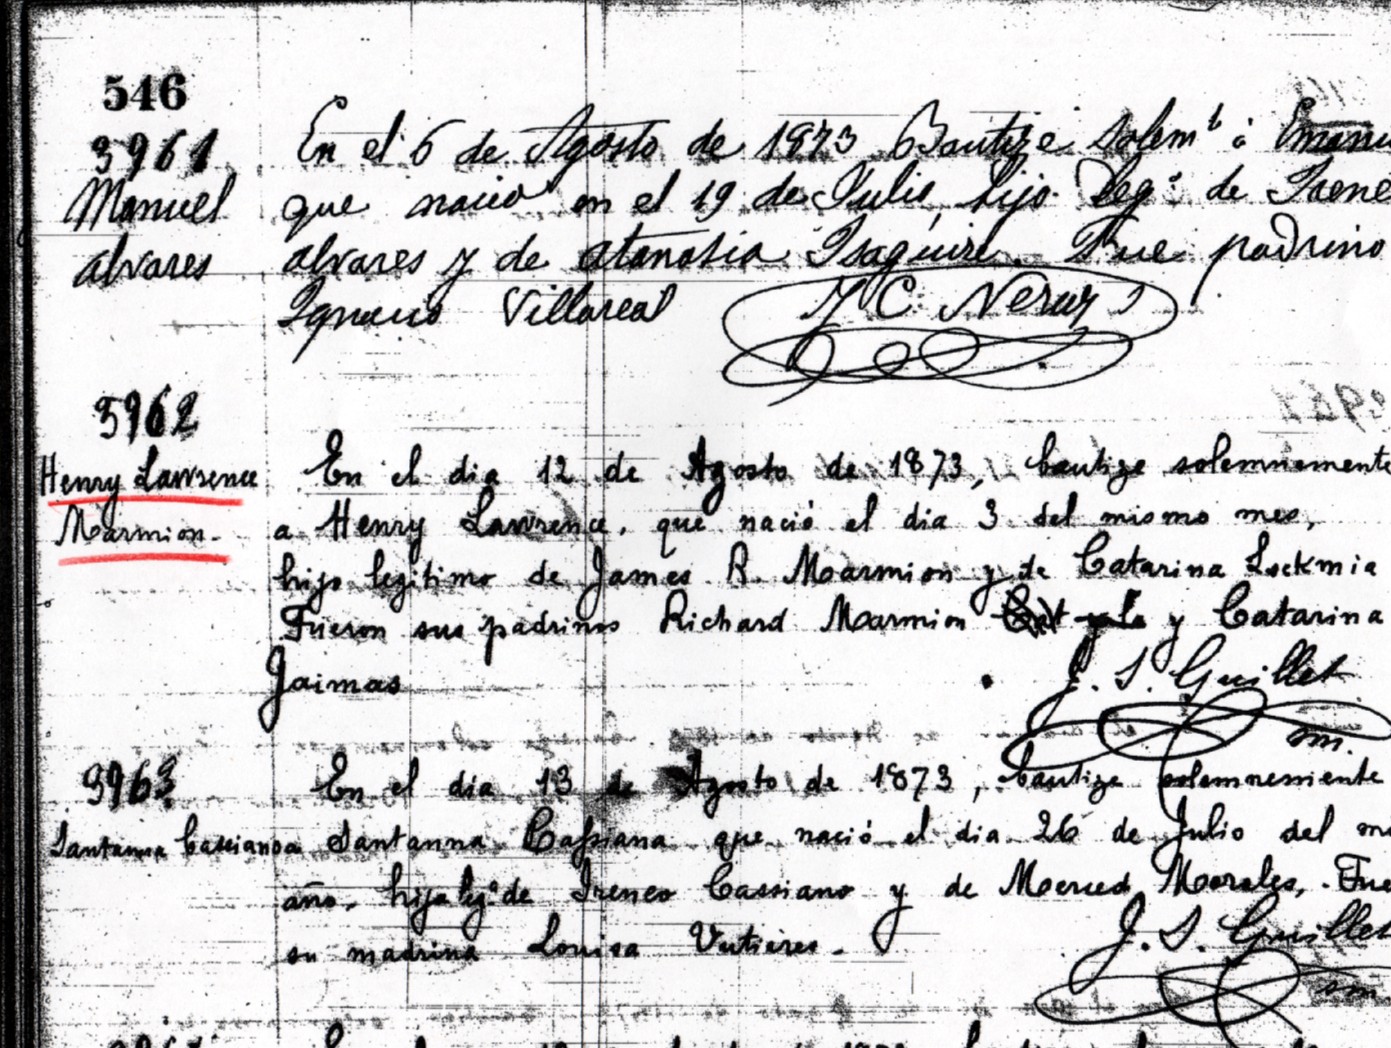 546
3961
Manuel
alvares
En el 6 de Agosto de 1873 Bautize solem.te á
que nacio en el 19 de Julio, hijo leg.o de Irene
alvares y de atanasia Isaguire. Fue padrino
Ignacio Villareal
3962
Henry Lawrence
Marmion.
En el dia 12 de Agosto de 1873, bautize solemnemente
a Henry Lawrence, que nació el dia 3 del mismo mes,
hijo legitimo de James R. Marmion y de Catarina Lockmia
Fueron sus padrinos Richard Marmion y Catarina
Jaimas
J. S. Guillet
om.
3963
Santanna Cassiana
En el dia 13 de Agosto de 1873, bautize solemnemente
a Santanna Cassiana que nació el dia 26 de Julio del
año, hija leg.a de Ireneo Cassiano y de Merced Morales. Fue
su madrina Louisa
J. S. Guillet
om.